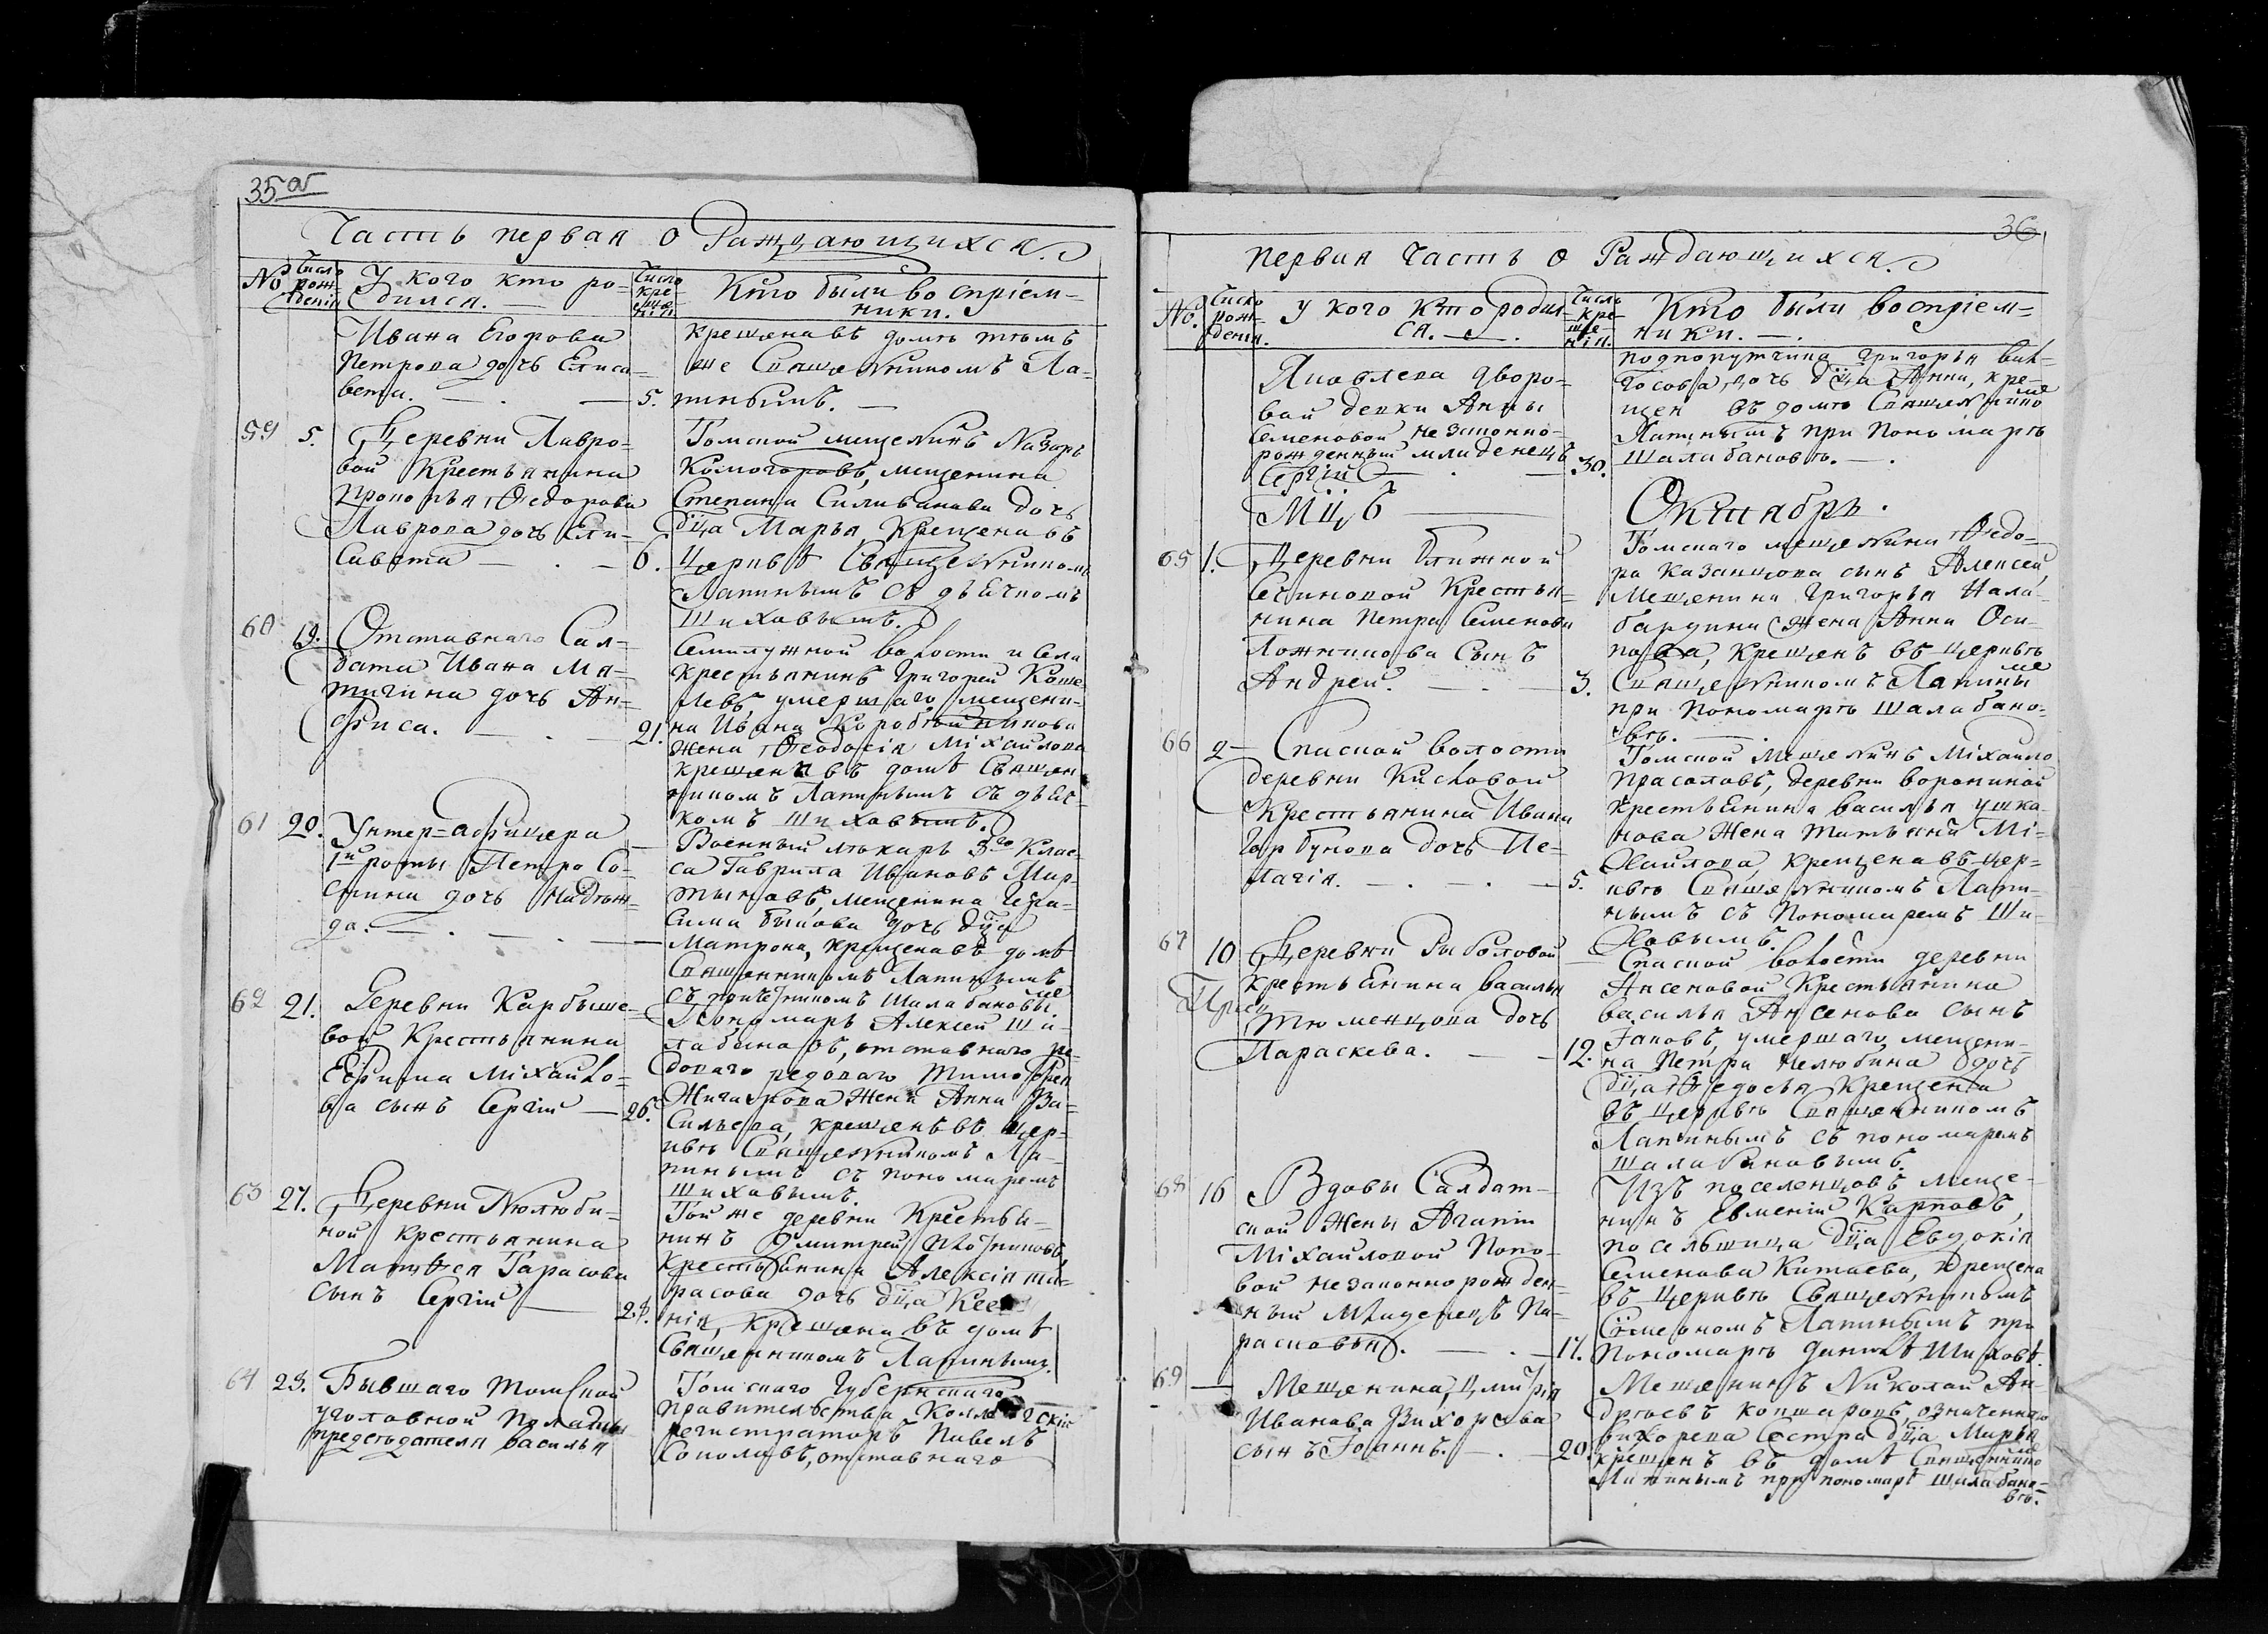 35 об
Часть первая о Раждающихся.
№
Число рож-
денія
У кого кто ро-
дился.
Число
кре-
ще-
нія.
Кто были воспріем-
ники.
Ивана Егорова
Петрова дочь Елиса-
вета. — 5.
крещена въ домѣ тѣмъ
же Священникомъ Ла-
пинымъ. —
59 5. Деревни Лавро-
вой Крестьянина
Прокопья Ѳедорова
Лаврова дочь Ели-
савета — . — 6.
Томской мещенинъ Назаръ
Комогоровъ, мещенина
Степана Силиванова дочь
дѣца Марья, Крещена въ
Церквѣ Священникомъ
Лапинымъ съ дьячкомъ
Шиховымъ.
60 19. Отставнаго Сал-
дата Ивана Ма-
тигина дочь Ан-
фиса. — . — 21.
Семилужной волости и села
крестьянинъ Григорей Коше-
левъ, умершаго мещени-
на Ивана Коробейникова
жена Ѳеодосія Міхайлова
крещена въ домѣ Священ
никомъ Лапинымъ съ дьяч-
комъ Шиховымъ.
61 20. Унтер-афицера
1й роты Петра Со-
сНина дочь Надѣж-
да. — . — . —
Военный лѣкарь 3го Клас-
са Гаврила Ивановъ Мар-
тыновъ, мещенина Гера-
сима Быкова дочь дѣца
Матрона, крещена въ домѣ
Священникомъ Лапинымъ
съ причетникомъ Шалабановымъ
62 21. Деревни Карбыше-
вой Крестьянина
Ефима Міхайло-
ва сынъ Сергій — 26.
Пономарь Алексей Ша-
лабановъ, отставнаго ре-
доваго Тимофея
Жигарова Жена Анна Ва-
сильева, крещенъ въ Цер-
квѣ Священникомъ Ла-
пинымъ съ пономаремъ
Шиховымъ.
63 27. Деревни Нелюби-
ной крестьянина
Матвея Тарасова
Сынъ Сергій — 28.
Той же деревни Крестья-
нинъ Дмитрей Плотниковъ
Крестьянина Алексія Та-
расова дочь дѣца Ксе
нія, крещена въ домѣ
Священникомъ Лапинымъ.
64 23. Бывшаго Томской
уголовной Полаты
председателя Василья
Томскаго Губернскаго
правительства Коллежскій
регистраторъ Павелъ
Соколовъ, отставнаго
36
первая Часть о Раждающихся.
№.
Число
рож-
денія.
У кого Кто родил-
ся. — .
Число
кре-
ще-
нія.
Кто были воспріем-
ники. — .
Яковлева дворо-
вой девки Анны
Семеновой незаконно-
рожденный младенецъ
Сергій — . — 30.
подпорутчика Григорья Вик-
тосова дочь дѣца Анна, кре-
щен въ домѣ Священником
Лапинымъ при Пономарѣ
Шалабановѣ. — .
Мцъ — Октябрь.
65 1. Деревни Ближной
Сечиновой Крестья-
нина Петра Семенова
Ложникова Сынъ
Андрей. — . — 3.
Томскаго мещенина Ѳедо-
ра Казанцова сынъ Алексей,
Мещенина Григорья Нала-
бардина Жена Анна Оси-
пова, Крещенъ въ церквѣ
Священникомъ Лапиным
при Пономарѣ Шалабано-
вѣ. — .
66 2 — Спаской волости
деревни Кисловой
Крестьянина Ивана
Горбунова дочь Пе-
лагія. — . — . — 5.
Томской Мещенинъ Міхаило
Прасоловъ, деревни Воронимой
крестьянина Василья Ушка-
нова Жена Татьяна Мі-
хайлова, крещена въ цер-
квѣ Священникомъ Лапи-
нымъ съ Пономаремъ Ши-
ховымъ.
67 10 Деревни Рыболовой
крестьянина Василья
Тюменцова дочь
Параскева. — . — 12.
Спаской волости деревни
Аксеновой Крестьянина
Василья Аксенова сынъ
Іаковъ, умершаго мещени-
на Петра Нелюбина дочь
дѣца Ѳедосья Крещена
въ церквѣ Священникомъ
Лапинымъ съ пономаремъ
Шалабановымъ.
68 16 Вдовы Салдат-
ской Жены Агапіи
Міхайловой Попо-
вой незаконнорожден-
ный Младенецъ Па-
расковья. — . — 17.
Изъ поселенцовъ меще-
нинъ Евмений Карповъ,
посельщица дѣца Евдокія
Семенова Китаева, Крещена
въ Церквѣ Священникомъ
Симеономъ Лапинымъ при
Пономарѣ Шиховѣ.
69 — Мещенина Дмитрія
Иванова Вихорева
сынъ Іоаннъ. — . — 20.
Мещенинъ Николай Ан-
дреевъ означеннаго
Вихорева Сестра дѣца Марья
крещенъ въ домѣ Священником
Лапинымъ при пономарѣ Шалабано-
вѣ.